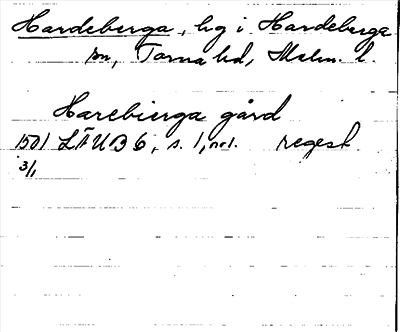 Hardeberga, hg i Hardeberga
sn, Torna hd, Malm. l.
Harebierga gård
1501 LÄUB 6, s. 1, nr 1. regest
3/1